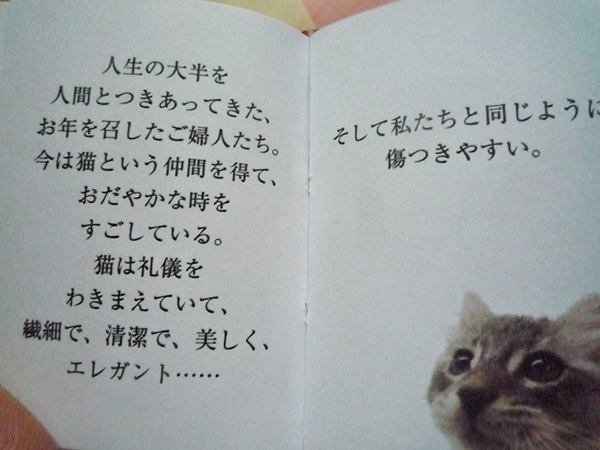 人生の大半を
人間とつきあってきた、
お年を召したご婦人たち。
今は猫という仲間を得て、
おだやかな時を
すごしている。
猫は礼儀を
わきまえていて、
繊細で、清潔で、美しく、
エレガント……
そして私たちと同じように
傷つきやすい。